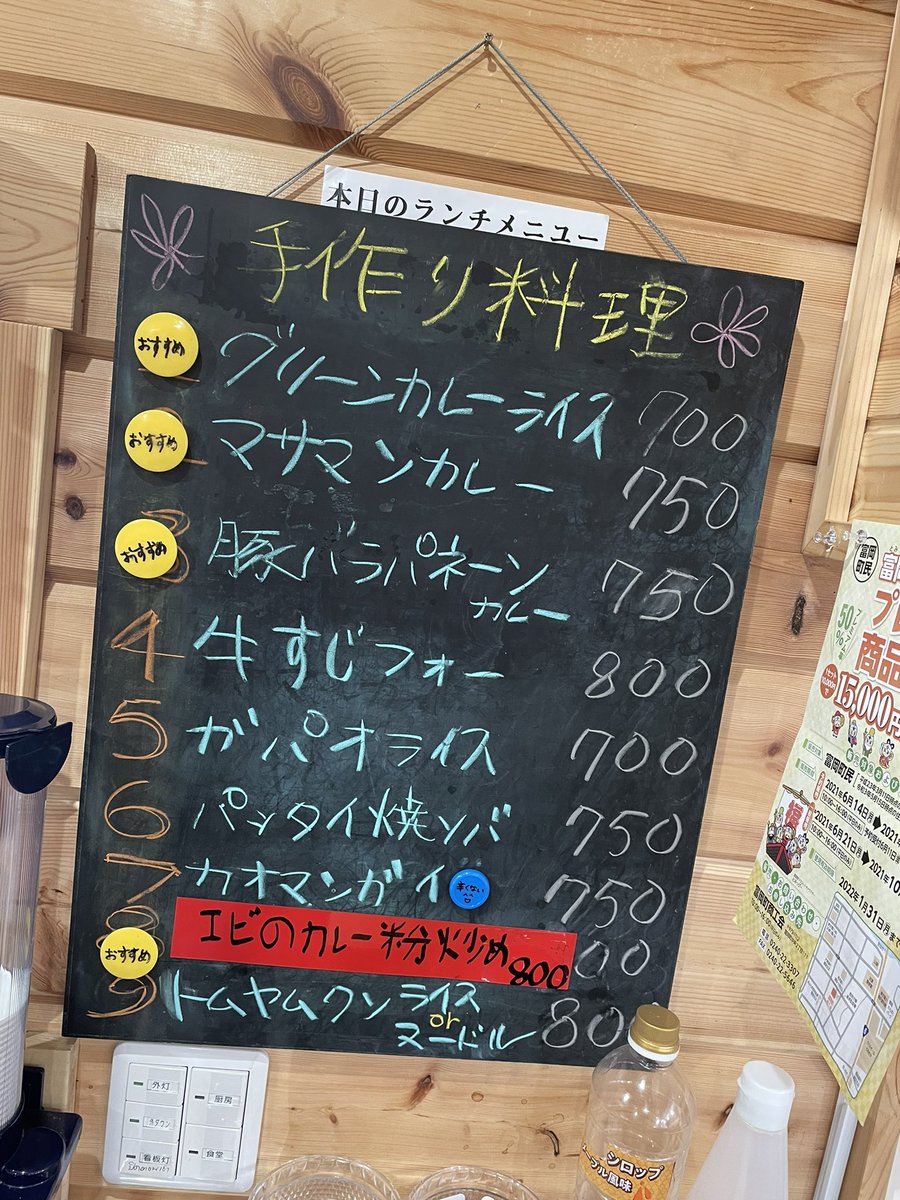 本日のランチメニュー
手作り料理
おすすめ グリーンカレーライス 700
おすすめ マサマンカレー 750
おすすめ 3 豚バラパネーンカレー 750
4 牛すじフォー 800
5 ガパオライス 700
6 パッタイ焼ソバ 750
7 カオマンガイ 辛くない 750
8 エビのカレー粉炒め 800 00
おすすめ
9 トムヤムクン ライス or ヌードル 80
富岡町民
富岡
プレ
50%
商品
15,000円
富岡町民
2021年6月14日
2021年6月21日
2021年10
2022年1月31日
富岡町商工会
0240-22-3307
FAX 0240-22-5646
外灯
看板灯
厨房
食堂
シロップ
プル風味